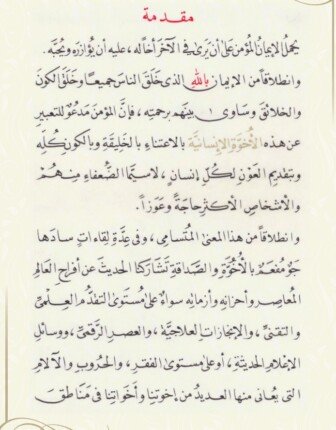 مقدمة
يحملُ الإيمانُ المؤمنَ على أن يَرىٰ في الآخَر أخًا له، عليه أن يُؤازرَه ويُحبَّه.
وانطلاقاً من الإيمانِ باللهِ الذي خَلَقَ الناسَ جميعًا وخَلَقَ الكونَ
والخلائقَ وساوى ١ بينَهم برحمتِه، فإنَّ المؤمنَ مَدعُوٌّ للتعبيرِ
عن هذه الأُخوَّةِ الإنسانيَّةِ بالاعتناءِ بالخليقةِ وبالكونِ كُلِّه
وبتقديمِ العَوْنِ لكُلِّ إنسانٍ، لاسيَّما الضُّعفاءِ منهُم
والأشخاصِ الأكثرِ حاجَةً وعَوَزاً.
وانطلاقاً من هذا المعنى المُتسامِي، وفي عِدَّةِ لقاءاتٍ سادَها
جَوٌّ مُفعَمٌ بالأُخُوَّةِ والصَّداقةِ تَشارَكنا الحديثَ عن أفراحِ العالَمِ
المُعاصِر وأحزانِه وأزماتِه سواءٌ على مُستَوى التقدُّم العِلميِّ
والتقنيِّ، والإنجازاتِ العلاجيَّة، والعصرِ الرَّقميِّ، ووسائلِ
الإعلامِ الحديثةِ، أو على مستوى الفقرِ، والحُروبِ والآلامِ
التي يُعاني منها العديدُ من إخوتِنا وأخَواتِنا في مَناطقَ